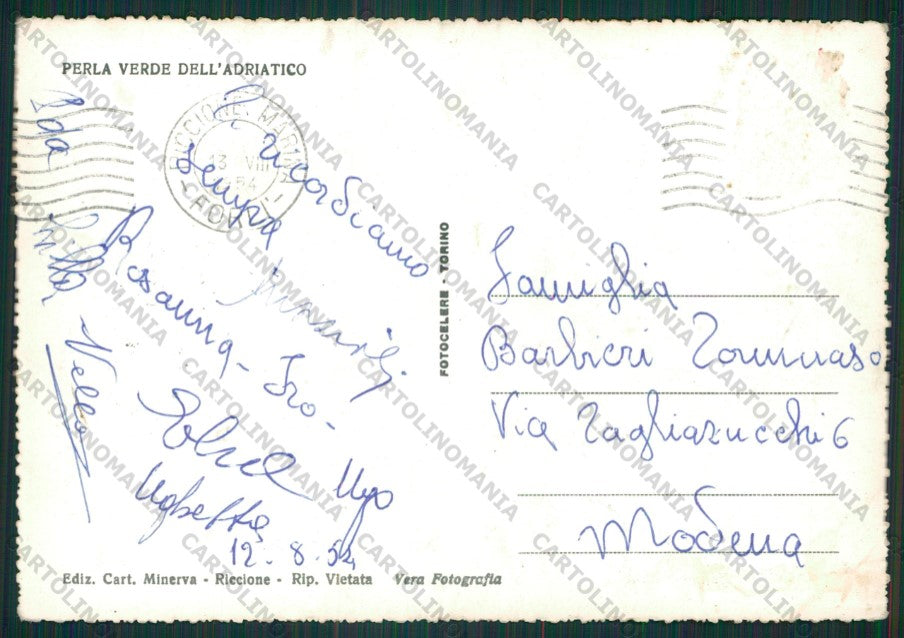 PERLA VERDE DELL'ADRIATICO
RICCIONE MARINA
13 VIII
54
- FORLI -
Vi ricordiamo
sempre
Rosanna - Iro -
Elsa
Ugo
Ughetta
12.8.54
Ada
Nello
FOTOCELERE - TORINO
Famiglia
Barbieri Tommaso
Via Tagliazucchi 6
Modena
Ediz. Cart. Minerva - Riccione - Rip. Vietata Vera Fotografia
CARTOLINOMANIA